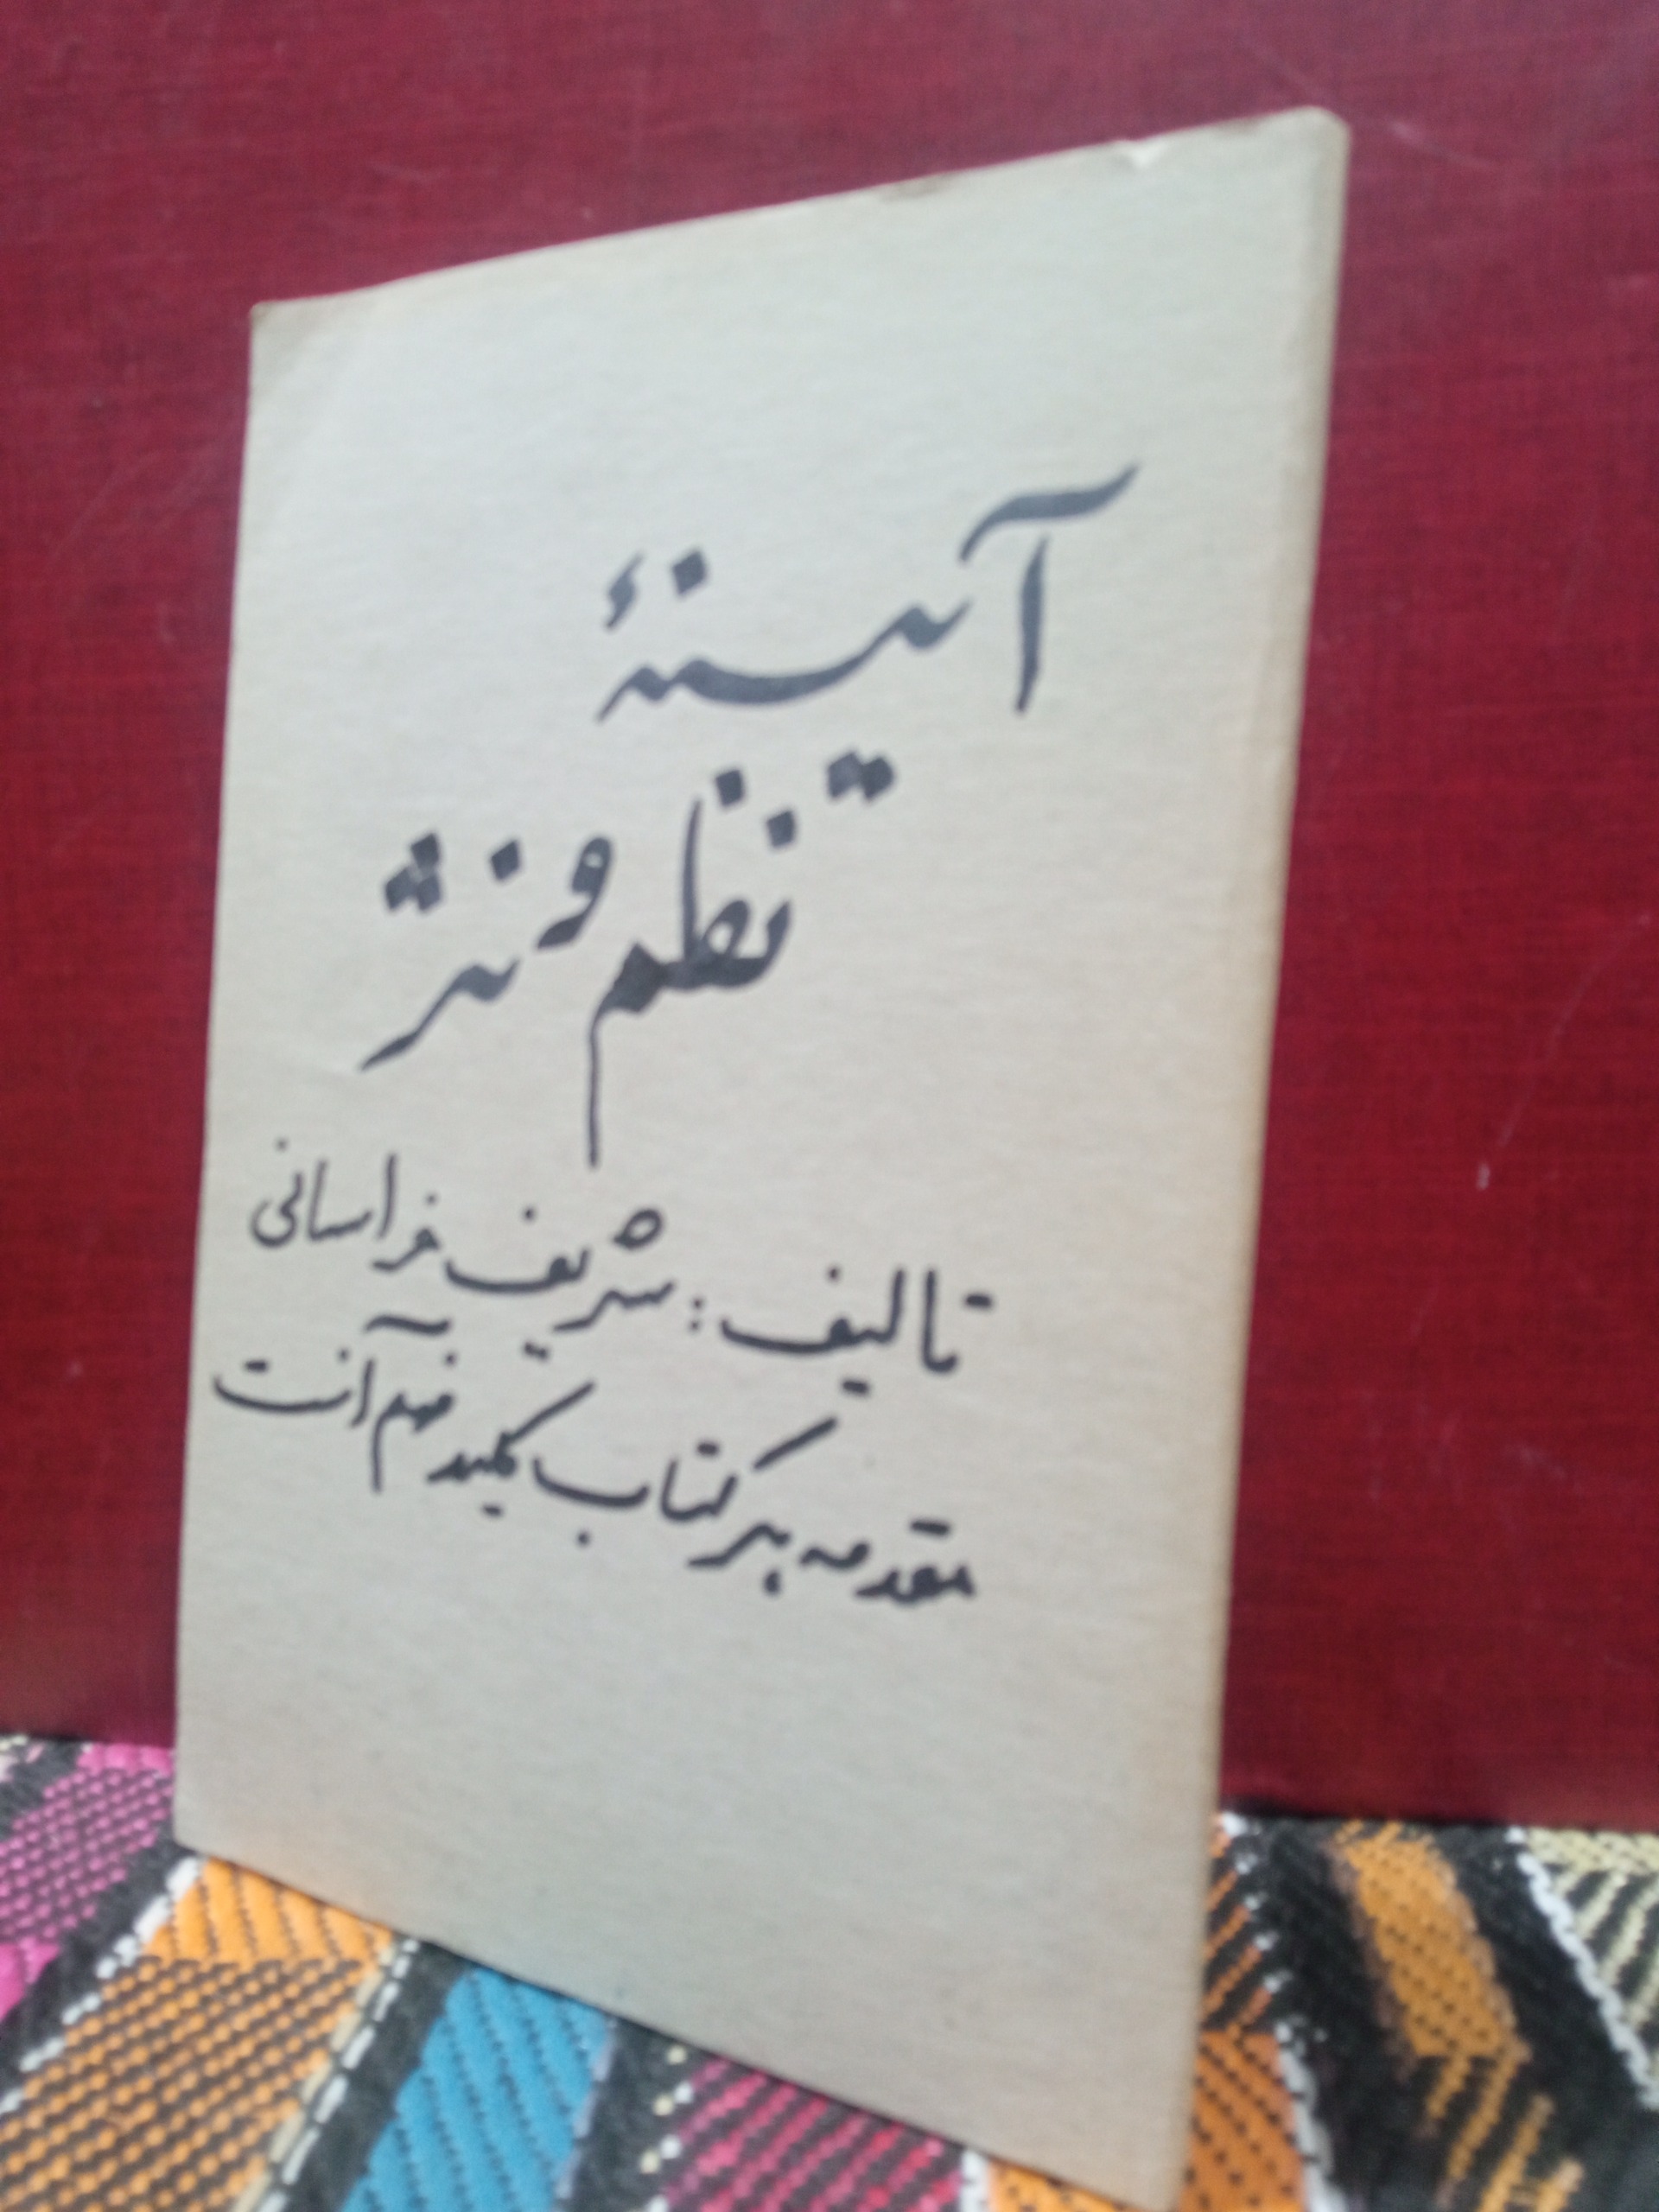 آیینهٔ
نظم و نثر
تالیف: شریف خراسانی
مقدمه هر کتاب کلید فهم آنست